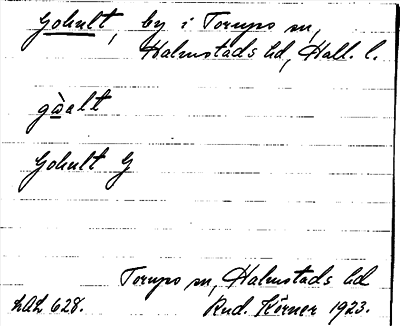 Gohult, by i Torups sn,
Halmstads hd, Hall. l.
gὼalt
Gohult G
Torups sn, Halmstads hd
LAL 628. Rud. Körner 1923.